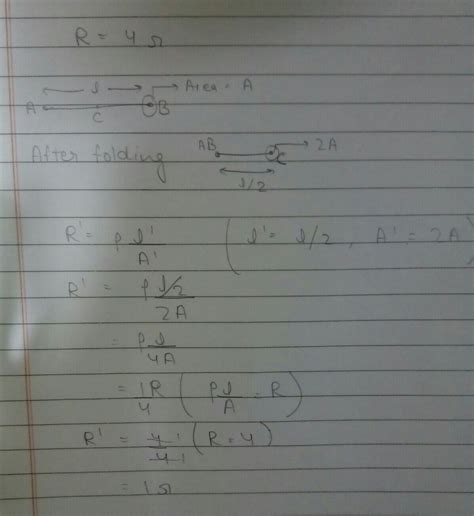 R = 4 Ω
l Area = A
A C B
After folding AB C 2A
l/2
R' = ρ l'/A' ( l' = l/2 , A' = 2A )
R' = ρ l/2 / 2A
= ρ l / 4A
= 1/4 R ( ρ l / A = R )
R' = 4 1 / 4 1 ( R = 4 )
= 1 Ω